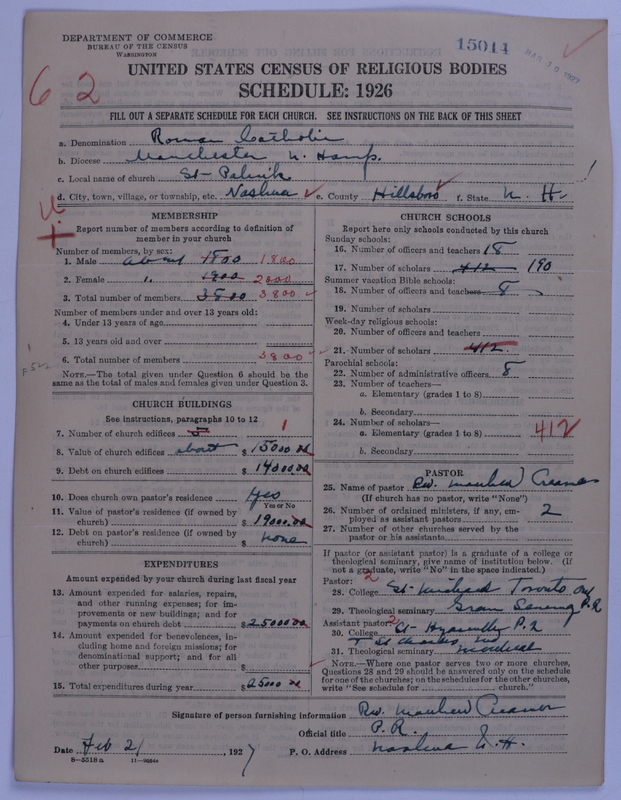 DEPARTMENT OF COMMERCE
BUREAU OF THE CENSUS
WASHINGTON
15014
UNITED STATES CENSUS OF RELIGIOUS BODIES
SCHEDULE: 1926
62
FILL OUT A SEPARATE SCHEDULE FOR EACH CHURCH. SEE INSTRUCTIONS ON THE BACK OF THIS SHEET
a. Denomination Roman Catholic
b. Diocese Manchester N. Hamp.
c. Local name of church St- Patrick
d. City, town, village, or township, etc. Nashua e. County Hillsboro f. State N. H-
MEMBERSHIP
Report number of members according to definition of
member in your church
Number of members, by sex:
1. Male about 1800 1800
2. Female 2000
3. Total number of members 3800 3800
Number of members under and over 13 years old:
4. Under 13 years of age
5. 13 years old and over
6. Total number of members 3800
NOTE.—The total given under Question 6 should be
the same as the total of males and females given under Question 3.
CHURCH BUILDINGS
See instructions, paragraphs 10 to 12
7. Number of church edifices 1
8. Value of church edifices about $ 15000.00
9. Debt on church edifices $ 14000.00
10. Does church own pastor's residence Yes
Yes or No
11. Value of pastor's residence (if owned by
church) $ 19000.00
12. Debt on pastor's residence (if owned by
church) $ none
EXPENDITURES
Amount expended by your church during last fiscal year
13. Amount expended for salaries, repairs,
and other running expenses; for im-
provements or new buildings; and for
payments on church debt $ 25000.00
14. Amount expended for benevolences, in-
cluding home and foreign missions; for
denominational support; and for all
other purposes $
15. Total expenditures during year $ 25000
CHURCH SCHOOLS
Report here only schools conducted by this church
Sunday schools:
16. Number of officers and teachers 18
17. Number of scholars 412 190
Summer vacation Bible schools:
18. Number of officers and teachers 8
19. Number of scholars
Week-day religious schools:
20. Number of officers and teachers
21. Number of scholars 412
Parochial schools:
22. Number of administrative officers 8
23. Number of teachers—
a. Elementary (grades 1 to 8)
b. Secondary
24. Number of scholars—
a. Elementary (grades 1 to 8) 412
b. Secondary
PASTOR
25. Name of pastor Rev. Matthew Creamer
(If church has no pastor, write "None")
26. Number of ordained ministers, if any, em-
ployed as assistant pastors 2
27. Number of other churches served by the
pastor or his assistants
If pastor (or assistant pastor) is a graduate of a college or
theological seminary, give name of institution below. (If
not a graduate, write "No" in the space indicated.)
Pastor: 2
28. College St- Michael Toronto
29. Theological seminary
Assistant pastor: 2
30. College St- Hyacinthe P.Q
31. Theological seminary Montreal
NOTE.—Where one pastor serves two or more churches,
Questions 28 and 29 should be answered only on the schedule
for one of the churches; on the schedules for the other churches,
write "See schedule for church."
Signature of person furnishing information Rev. Matthew Creamer
Official title P.R.
Date Feb 21, 1927 P. O. Address Nashua N.H.
8—5518a 11—9664